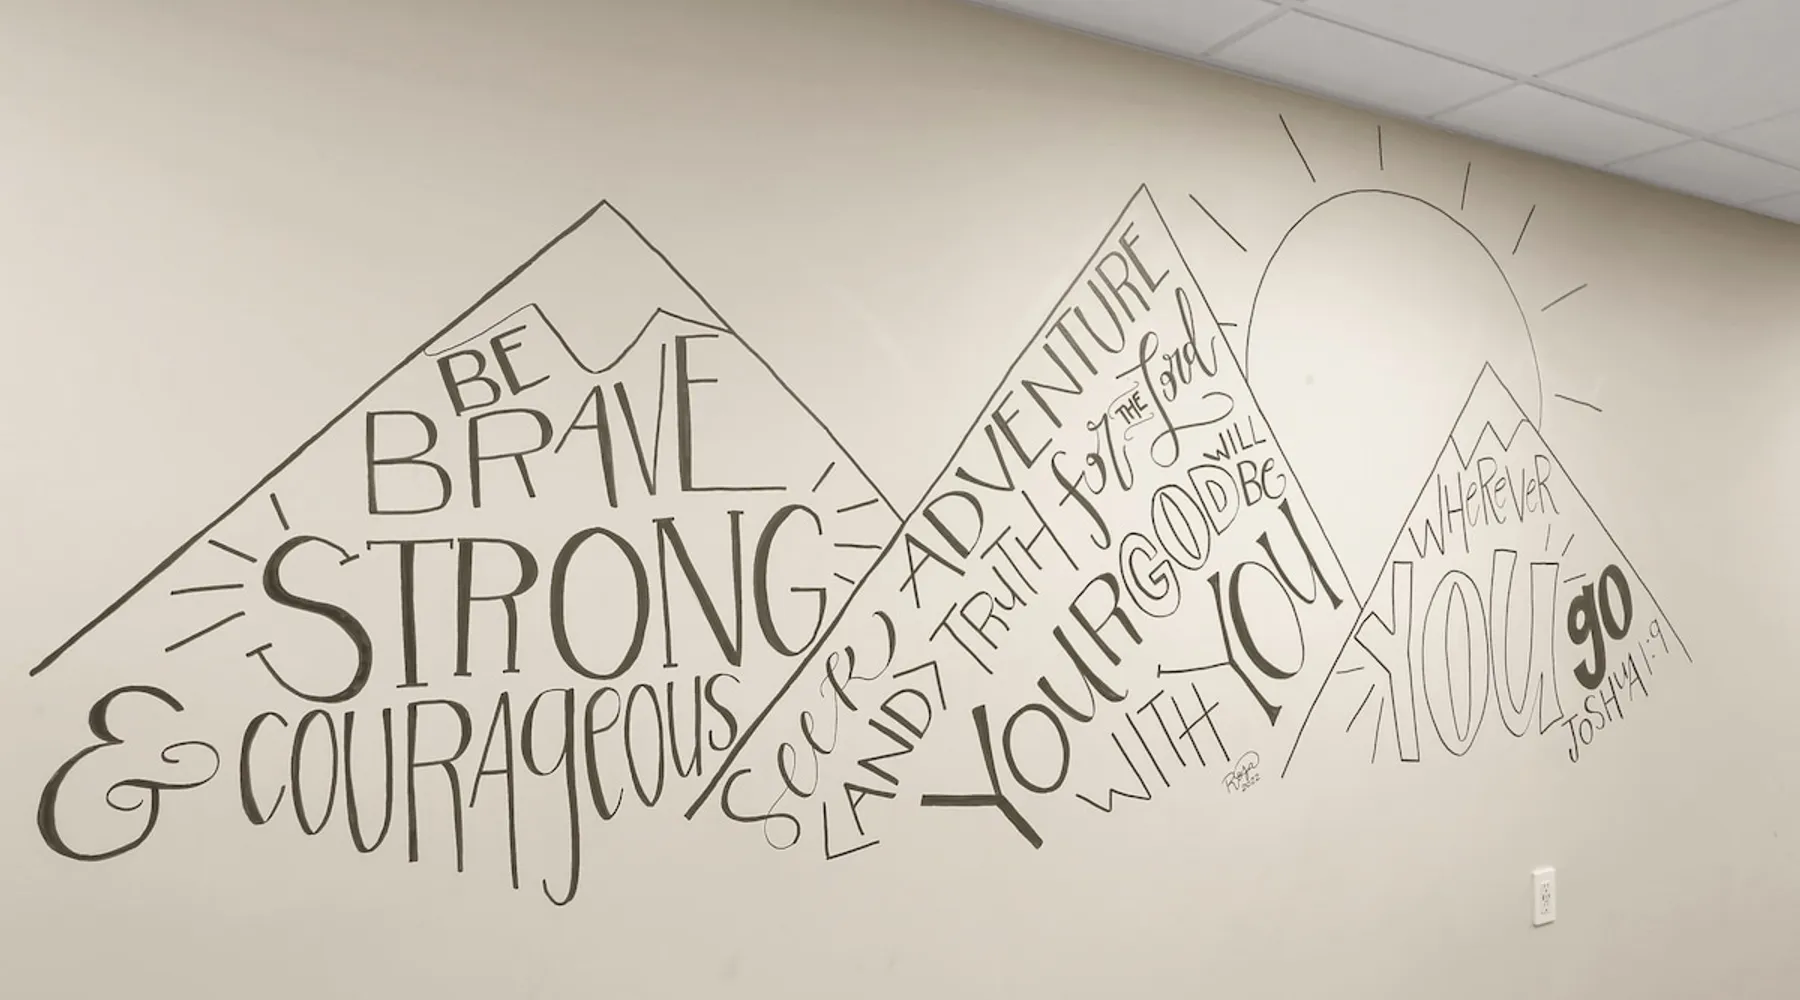 BE
BRAVE
STRONG
& COURAGEOUS
SEEK ADVENTURE
AND TRUTH for THE Lord
YOUR GOD WILL BE
WITH YOU
Roja
2022
WHEREVER
YOU go
JOSHUA 1:9